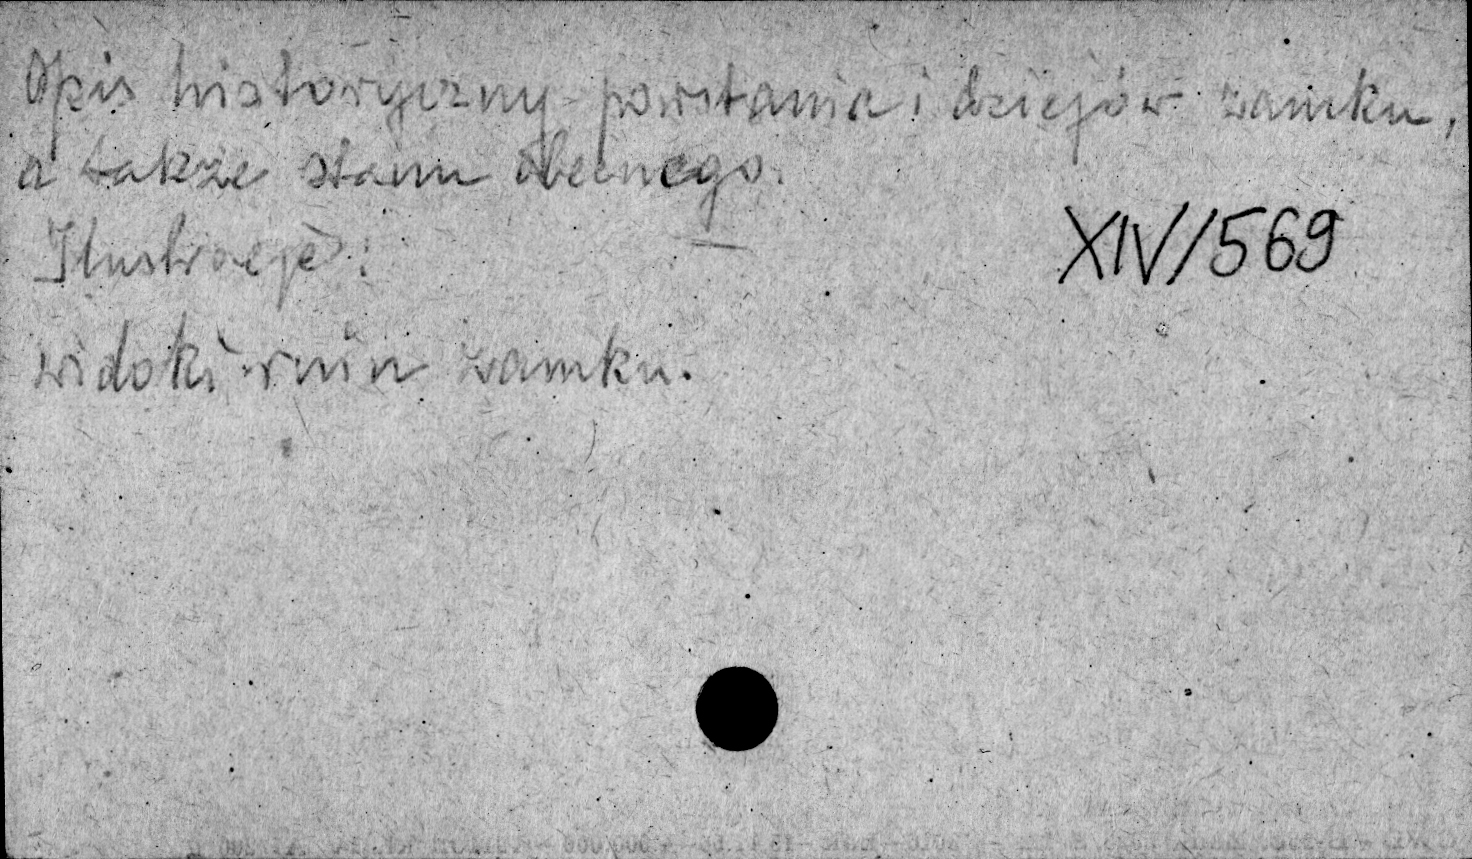 Opis historyczny powstania i dziejów zamku,
a także stanu obecnego.
XIV/569
Ilustracje:
widoki ruin zamku.